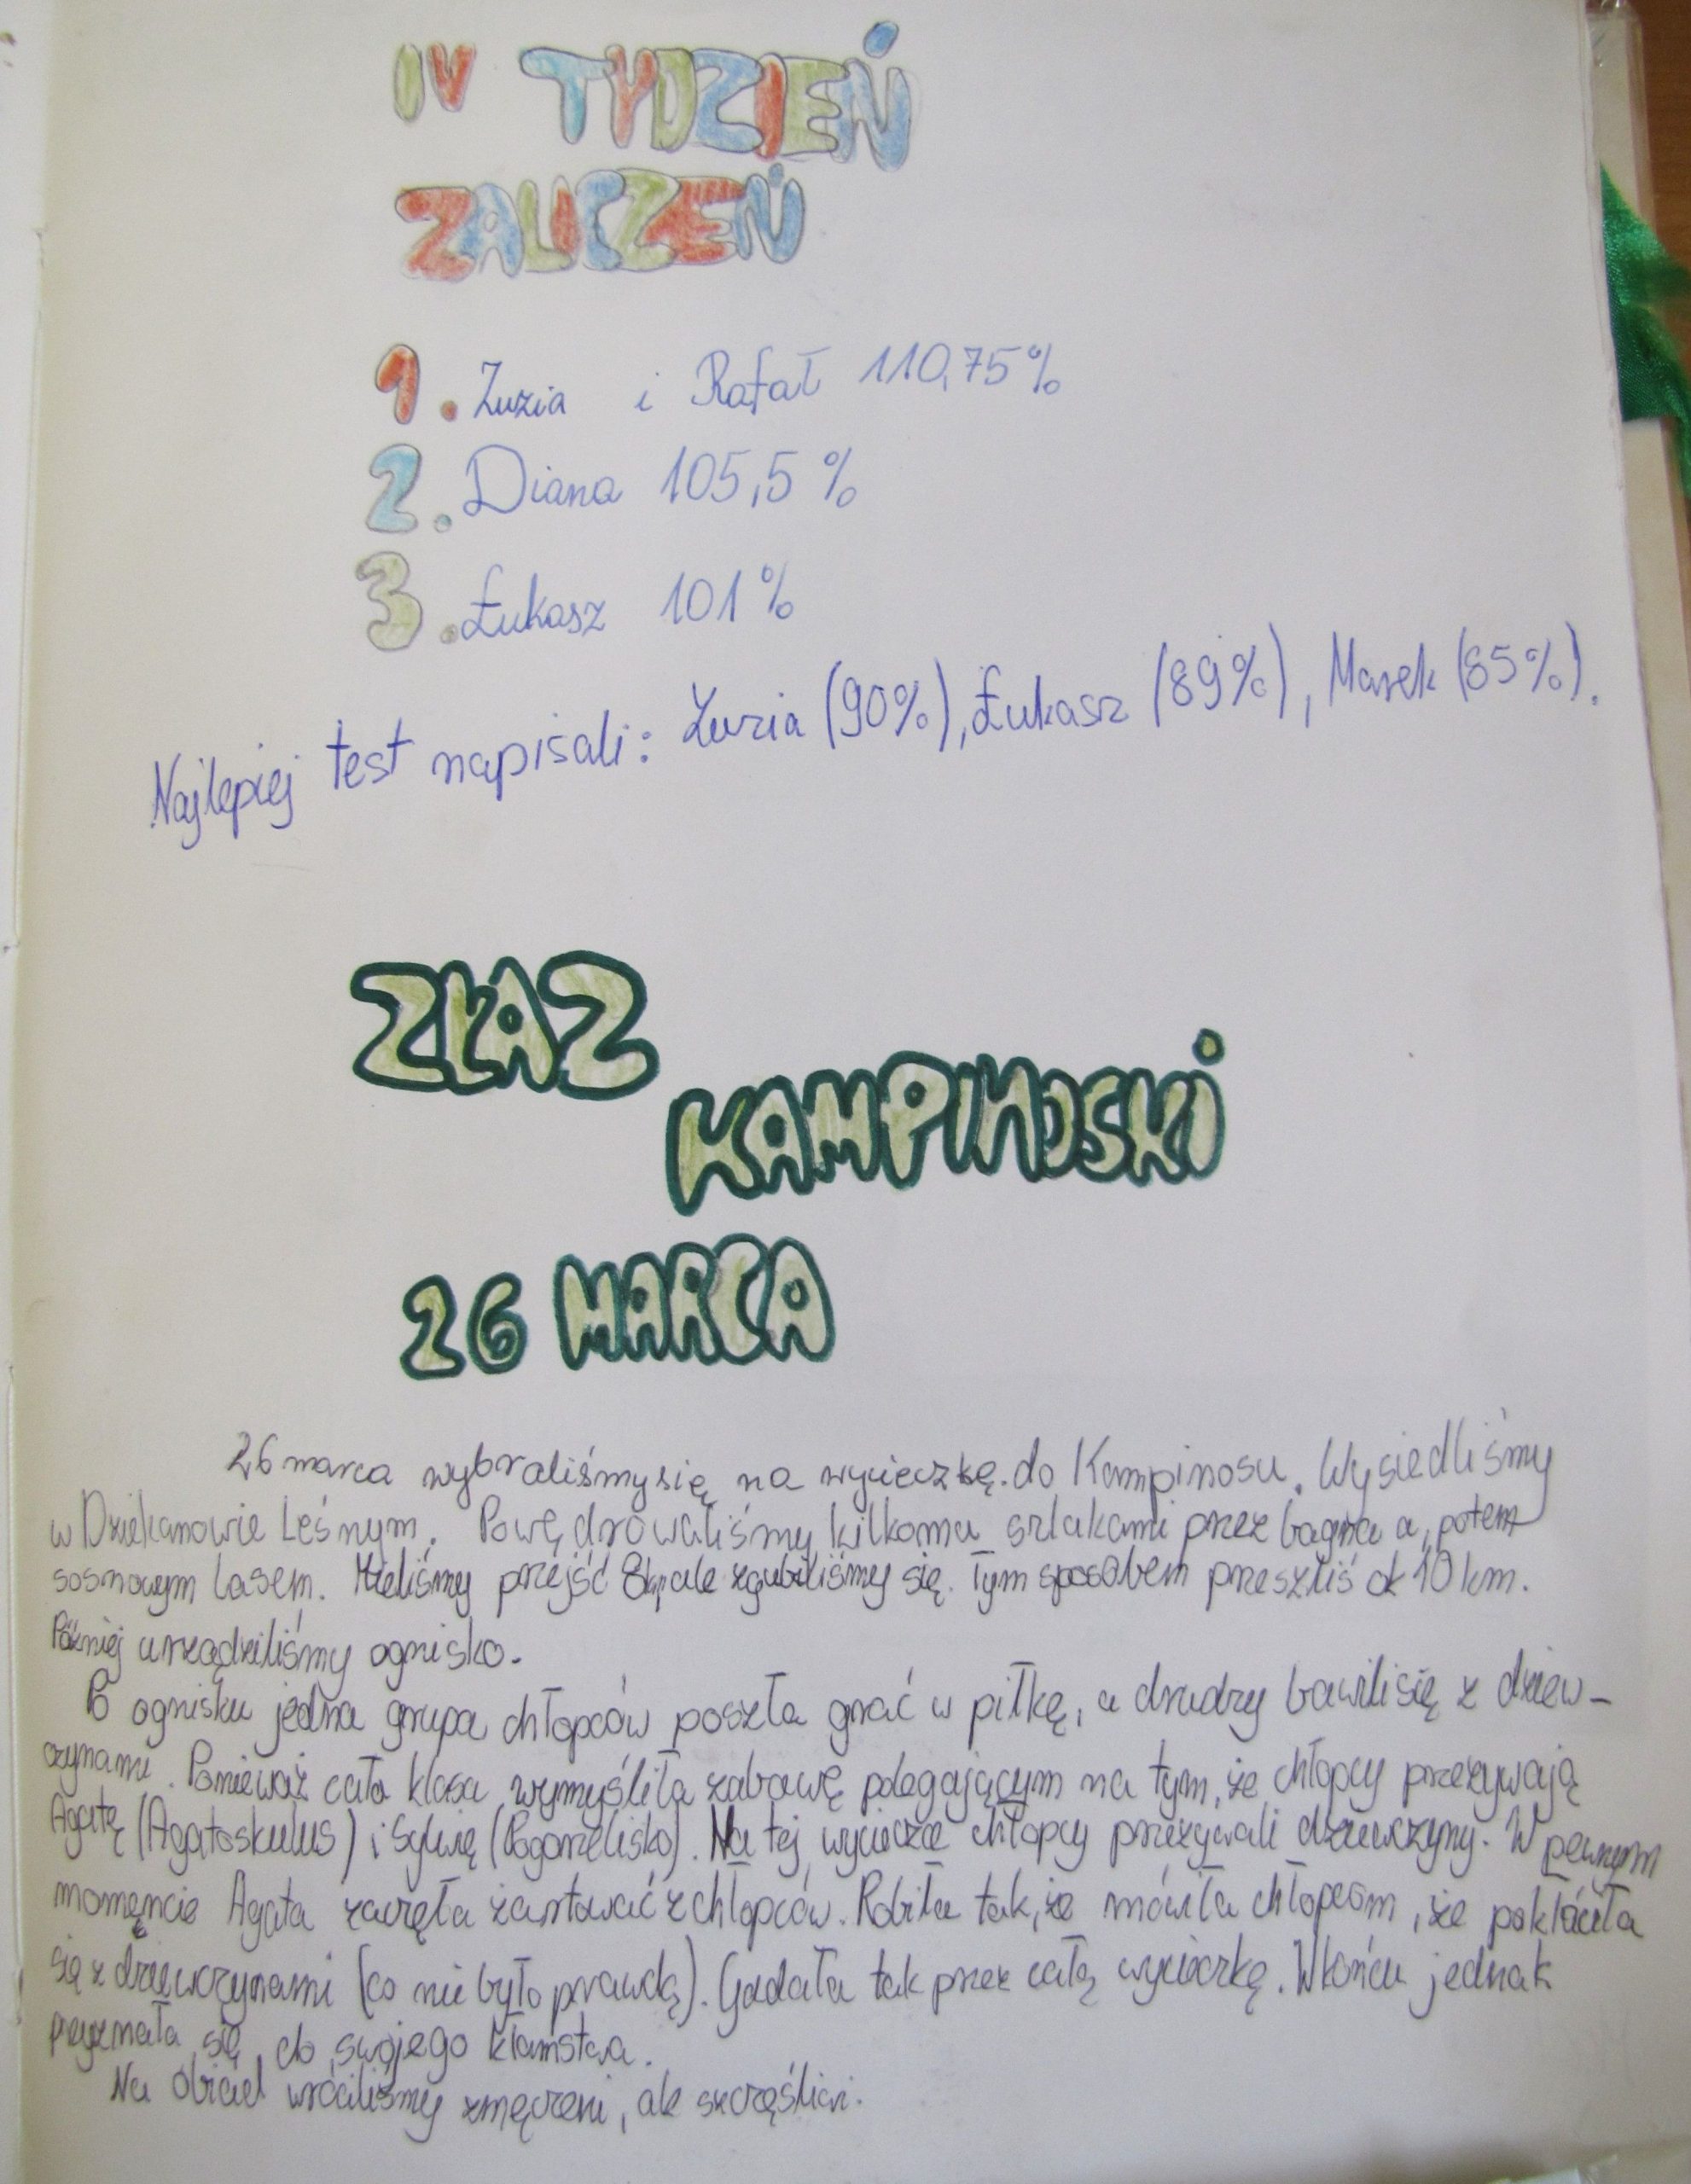 IV TYDZIEŃ
ZALICZEŃ
1. Zuzia i Rafał 110,75%
2. Diana 105,5 %
3. Łukasz 101%
Najlepiej test napisali: Zuzia (90%), Łukasz (89%), Marek (85%).
ZŁAZ
KAMPINOSKI
26 MARCA
26 marca wybraliśmy się na wycieczkę do Kampinosu. Wysiedliśmy
w Dziekanowie Leśnym. Powędrowaliśmy kilkoma szlakami przez bagna a potem
sosnowym lasem. Mieliśmy przejść 8 km, ale zgubiliśmy się. Tym sposobem przeszliś ok 10 km.
Później urządziliśmy ognisko.
Po ognisku jedna grupa chłopców poszła grać w piłkę, a drudzy bawili się z dziew-
czynami. Ponieważ cała klasa wymyśliła zabawę polegającym na tym, że chłopcy przezywają
Agatę (Agatoskulus) i Sylwię (Pogorzelisko). Na tej wycieczce chłopcy przezywali dziewczyny. W pewnym
momencie Agata zaczęła żartować z chłopców. Robiła tak, że mówiła chłopcom, że pokłóciła
się z dziewczynami (co nie było prawdą). Gadała tak przez całą wycieczkę. W końcu jednak
przyznała się do swojego kłamstwa.
Na obiad wróciliśmy zmęczeni, ale szczęśliwi.